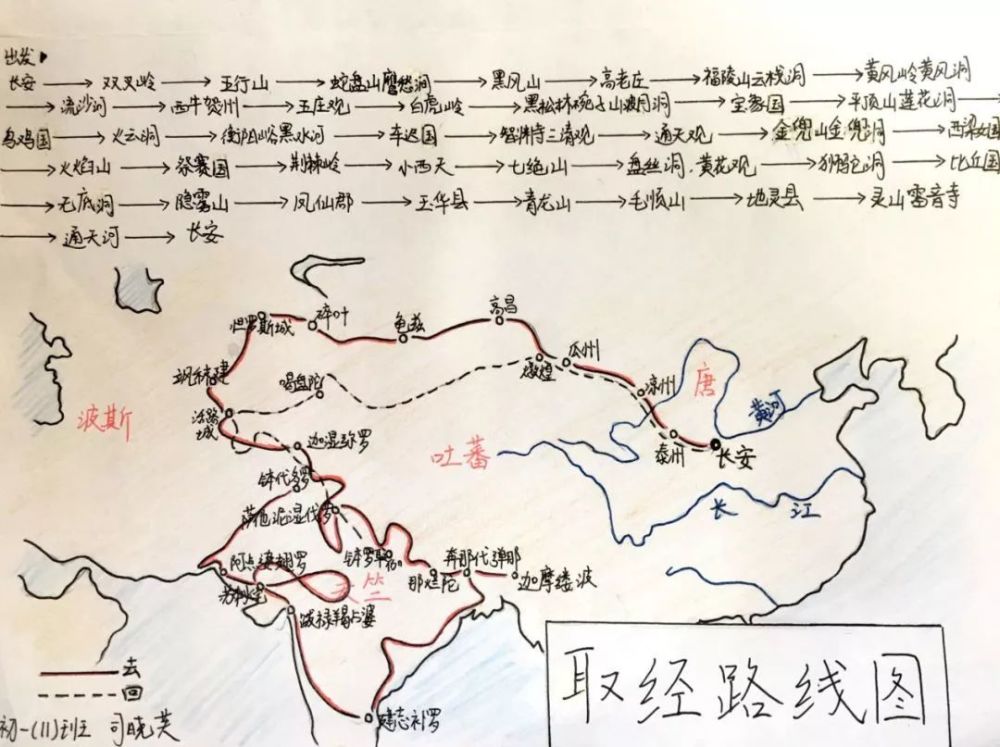 出发
长安 → 双叉岭 → 五行山 → 蛇盘山鹰愁涧 → 黑风山 → 高老庄 → 福陵山云栈洞 → 黄风岭黄风洞
→ 流沙河 → 西牛贺州 → 五庄观 → 白虎岭 → 黑松林碗子山波月洞 → 宝象国 → 平顶山莲花洞 →
乌鸡国 → 火云洞 → 衡阳峪黑水河 → 车迟国 → 智渊寺三清观 → 通天观 → 金兜山金兜洞 → 西梁女国
→ 火焰山 → 祭赛国 → 荆棘岭 → 小西天 → 七绝山 → 盘丝洞、黄花观 → 狮驼洞 → 比丘国
→ 无底洞 → 隐雾山 → 凤仙郡 → 玉华县 → 青龙山 → 毛顺山 → 地灵县 → 灵山雷音寺
→ 通天河 → 长安
高昌
碎叶
怛罗斯城
龟兹
瓜州
敦煌
凉州
唐
黄河
飒秣建
喝盘陀
波斯
活路城
迦湿弥罗
吐蕃
秦州
长安
钵代多罗
萨他泥湿伐罗
长江
阿点婆翅罗
钵罗耶
奔那伐弹那
那烂陀
迦摩缕波
天竺
跋禄羯占婆
去
回
建志补罗
取经路线图
初一(11)班 司晓芙